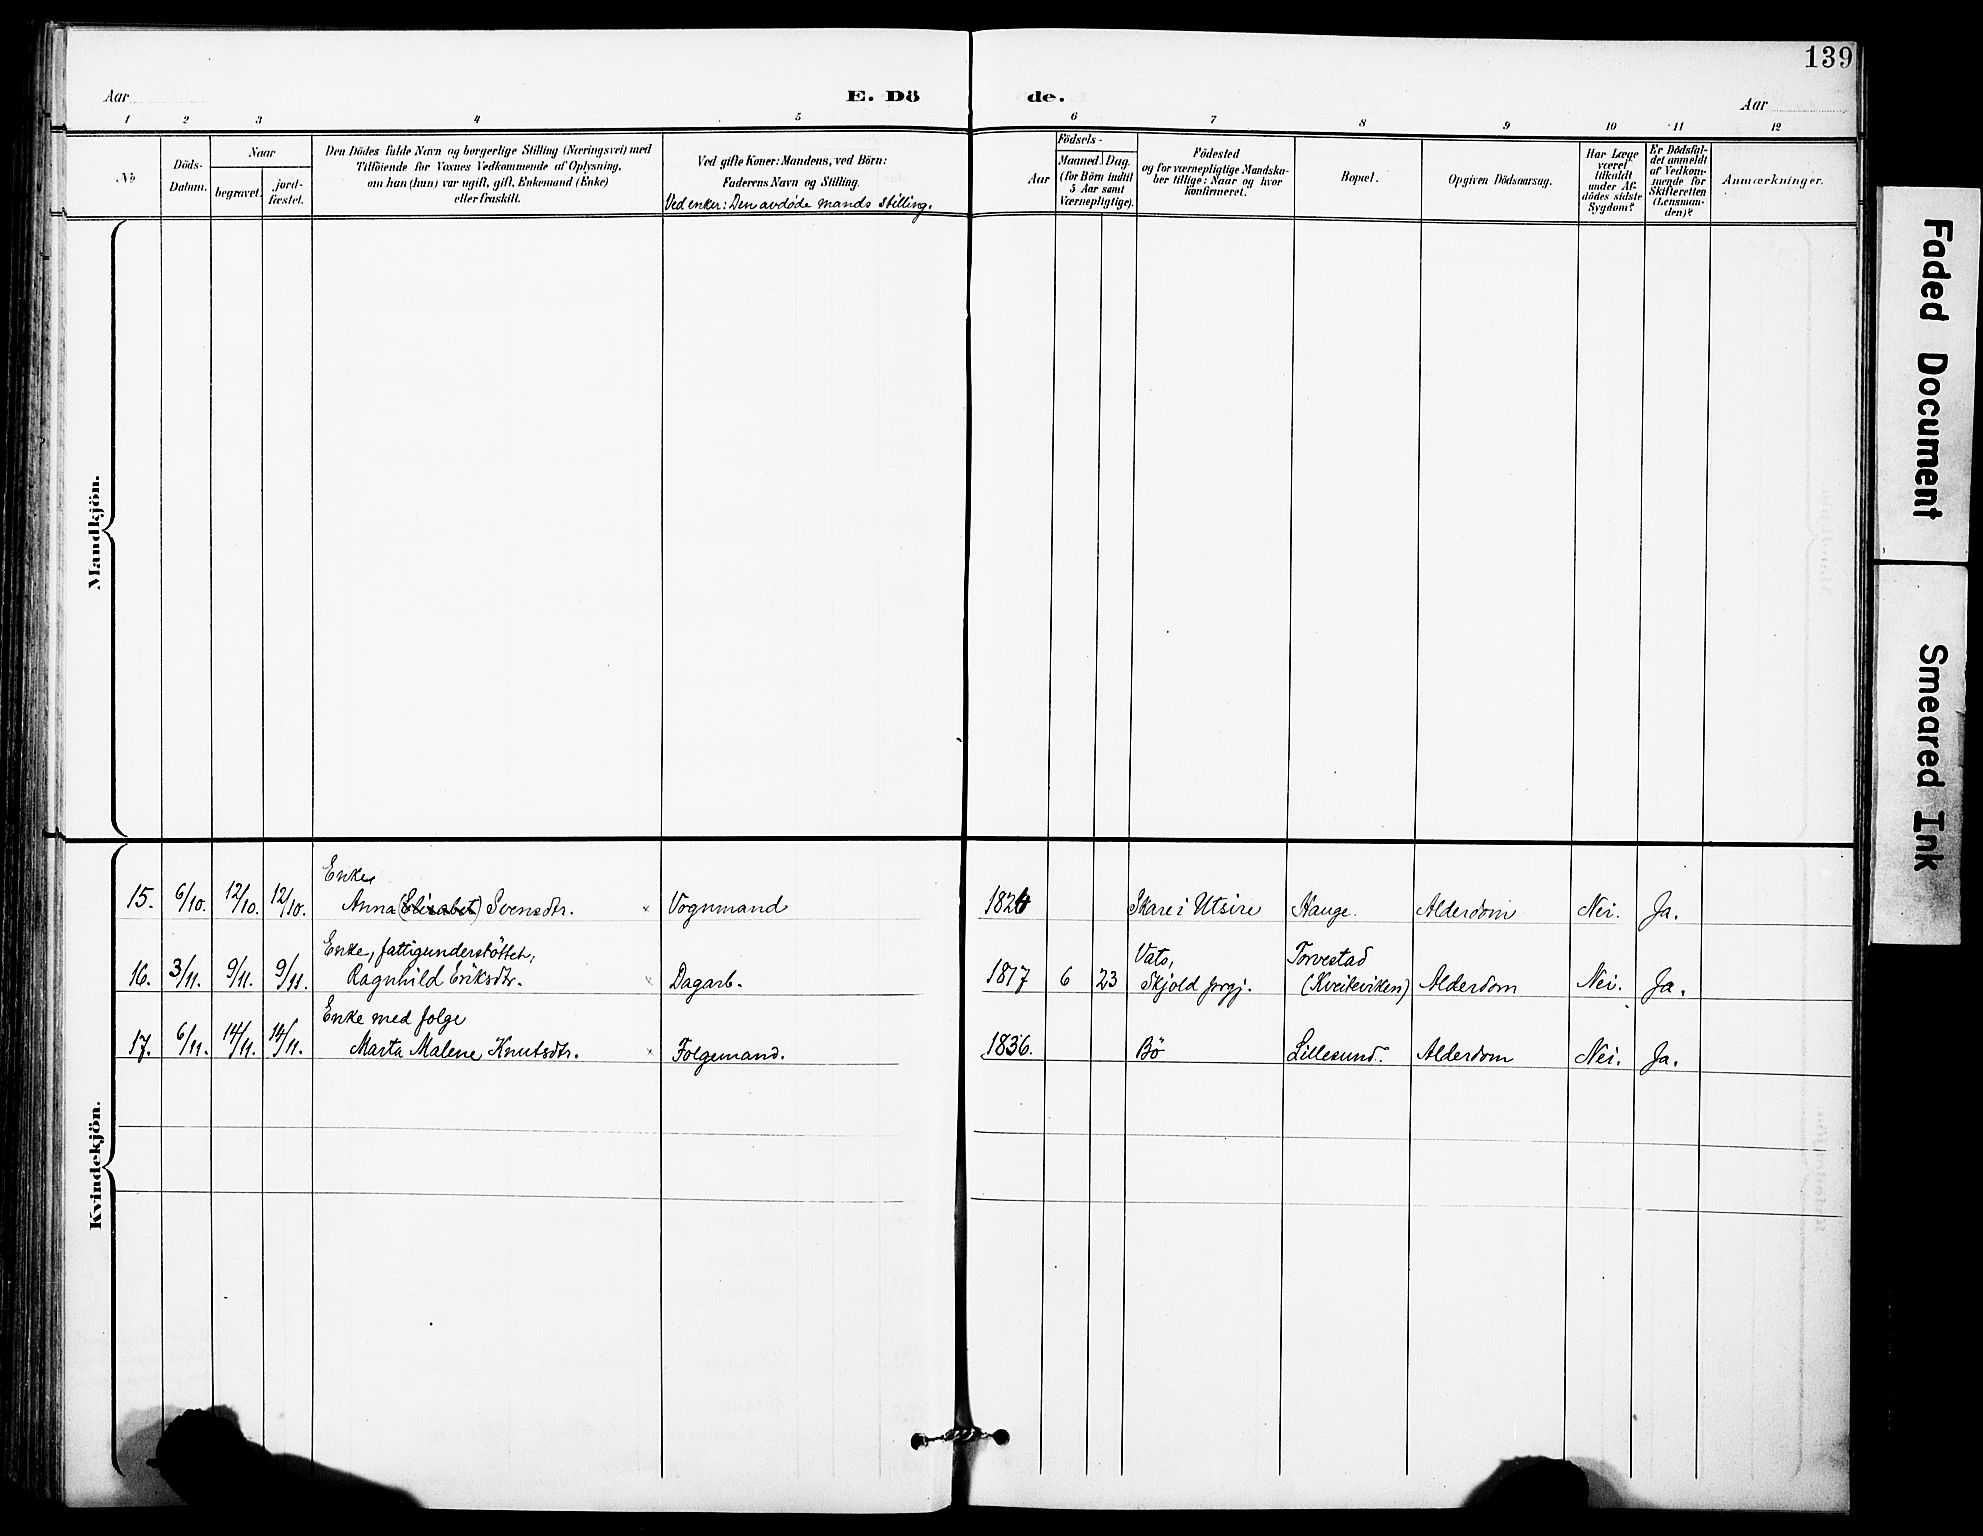 139
Aar
E. Dö
de.
Aar
1 2 3 4 5 6 7 8 9 10 11 12
No
Döds-Datum.
Naar
begravet.
jord-fæstet.
Den Dödes fulde Navn og borgerlige Stilling (Næringsvei) med
Tilföiende for Voxnes Vedkommende af Oplysning,
om han (hun) var ugift, gift, Enkemand (Enke)
eller fraskilt.
Ved gifte Koner: Mandens, ved Börn:
Faderens Navn og Stilling.
Ved enker: Den avdöde mands stilling.
Aar
Födsels-
Maaned. Dag.
(for Börn indtil
5 Aar samt
Værnepligtige).
Födested
og for værnepligtige Mandska-
ber tillige: Naar og hvor
konfirmeret.
Bopæl.
Opgiven Dödsaarsag.
Har Læge
været
tilkaldt
under Af-
dödes sidste
Sygdom?
Er Dödsfal-
det anmeldt
af Vedkom-
mende for
Skifteretten
(Lensman-
den)?
Anmærkninger.
Mandkjön.
Enke
15. 6/10. 12/10. 12/10. Anna (Elisabet) Svensdtr. Vognmand 1826 Skare i Utsire Hauge. Alderdom Nei. Ja.
Enke, fattigunderstöttet, Vats, Torvestad
16. 3/11. 9/11. 9/11. Ragnhild Eriksdtr. Dagarb. 1817 6 23 Skjold prgj. (Kveikeviken) Alderdom Nei. Ja.
Enke med folge
17. 6/11. 14/11. 14/11. Marta Malene Knutsdtr. Folgemand. 1836. Bö Lillesund. Alderdom Nei. Ja.
Kvindekjön.
Faded Document
Smeared Ink